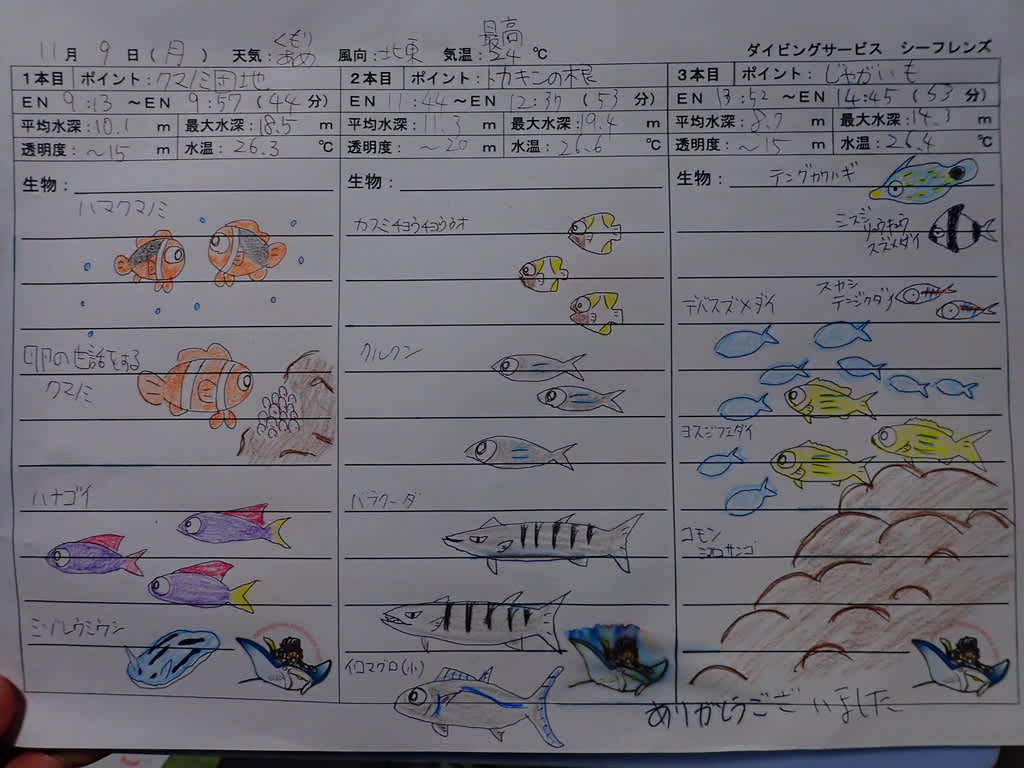 11月 9日(月) 天気:くもり あめ 風向:北東 気温:最高 24℃
ダイビングサービス シーフレンズ
1本目 ポイント:クマノミ団地
EN 9:13 ~EN 9:57 (44分)
平均水深:10.1 m 最大水深:18.5 m
透明度:~15 m 水温:26.3 ℃
生物:
ハマクマノミ
卵の世話をする
クマノミ
ハナゴイ
ミゾレウミウシ
2本目 ポイント:トカキンの根
EN 11:44 ~EN 12:37 (53分)
平均水深:11.3 m 最大水深:19.4 m
透明度:~20 m 水温:26.6 ℃
生物:
カスミチョウチョウウオ
クルクン
バラクーダ
イソマグロ(小)
3本目 ポイント:じゃがいも
EN 13:52 ~EN 14:45 (53分)
平均水深:8.7 m 最大水深:14.3 m
透明度:~15 m 水温:26.4 ℃
生物: テングカワハギ
ミスジ
リュウキュウ
スズメダイ
スカシ
テンジクダイ
デバスズメダイ
ヨスジフエダイ
コモン
シコロサンゴ
ありがとうございました